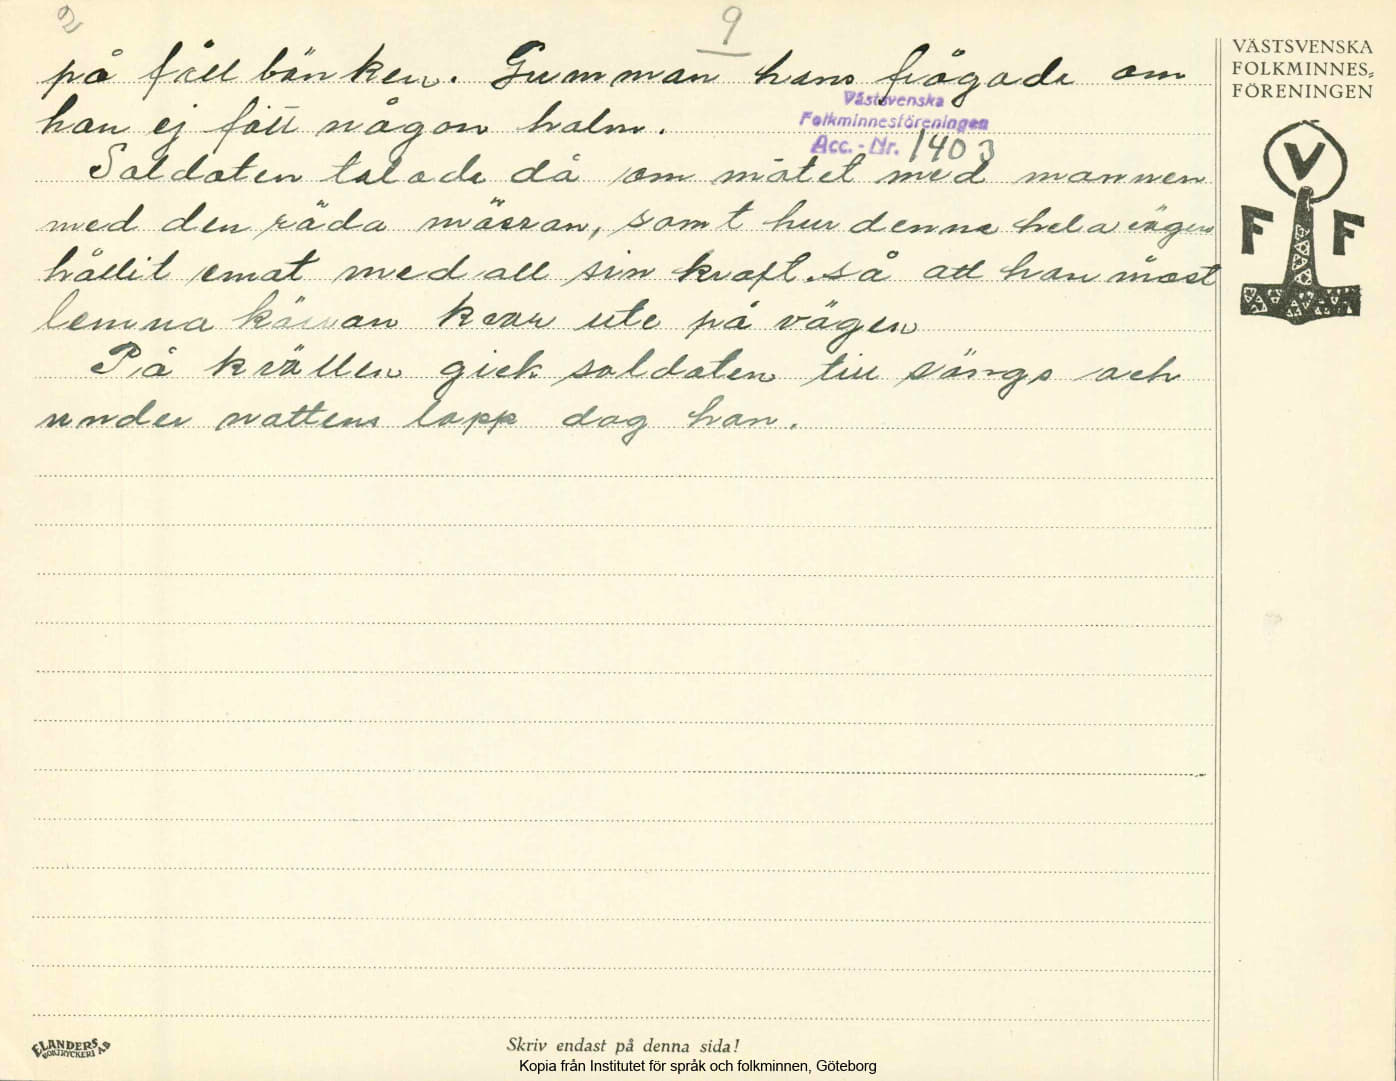 2
9
på fållbänken. Gumman hans frågade om
han ej fått någon halm.
Västsvenska
Folkminnesföreningen
Acc. - Nr. 1403
Soldaten talade då om mötet med mannen
med den röda mössan, samt hur denne hela vägen
hållit emot med all sin kraft. så att han måst
lemna kärran kvar ute på vägen
På kvällen gick soldaten till sängs och
under nattens lopp dog han.
VÄSTSVENSKA
FOLKMINNES-
FÖRENINGEN
V
F F
ELANDERS
BOKTRYCKERI AB
Skriv endast på denna sida!
Kopia från Institutet för språk och folkminnen, Göteborg